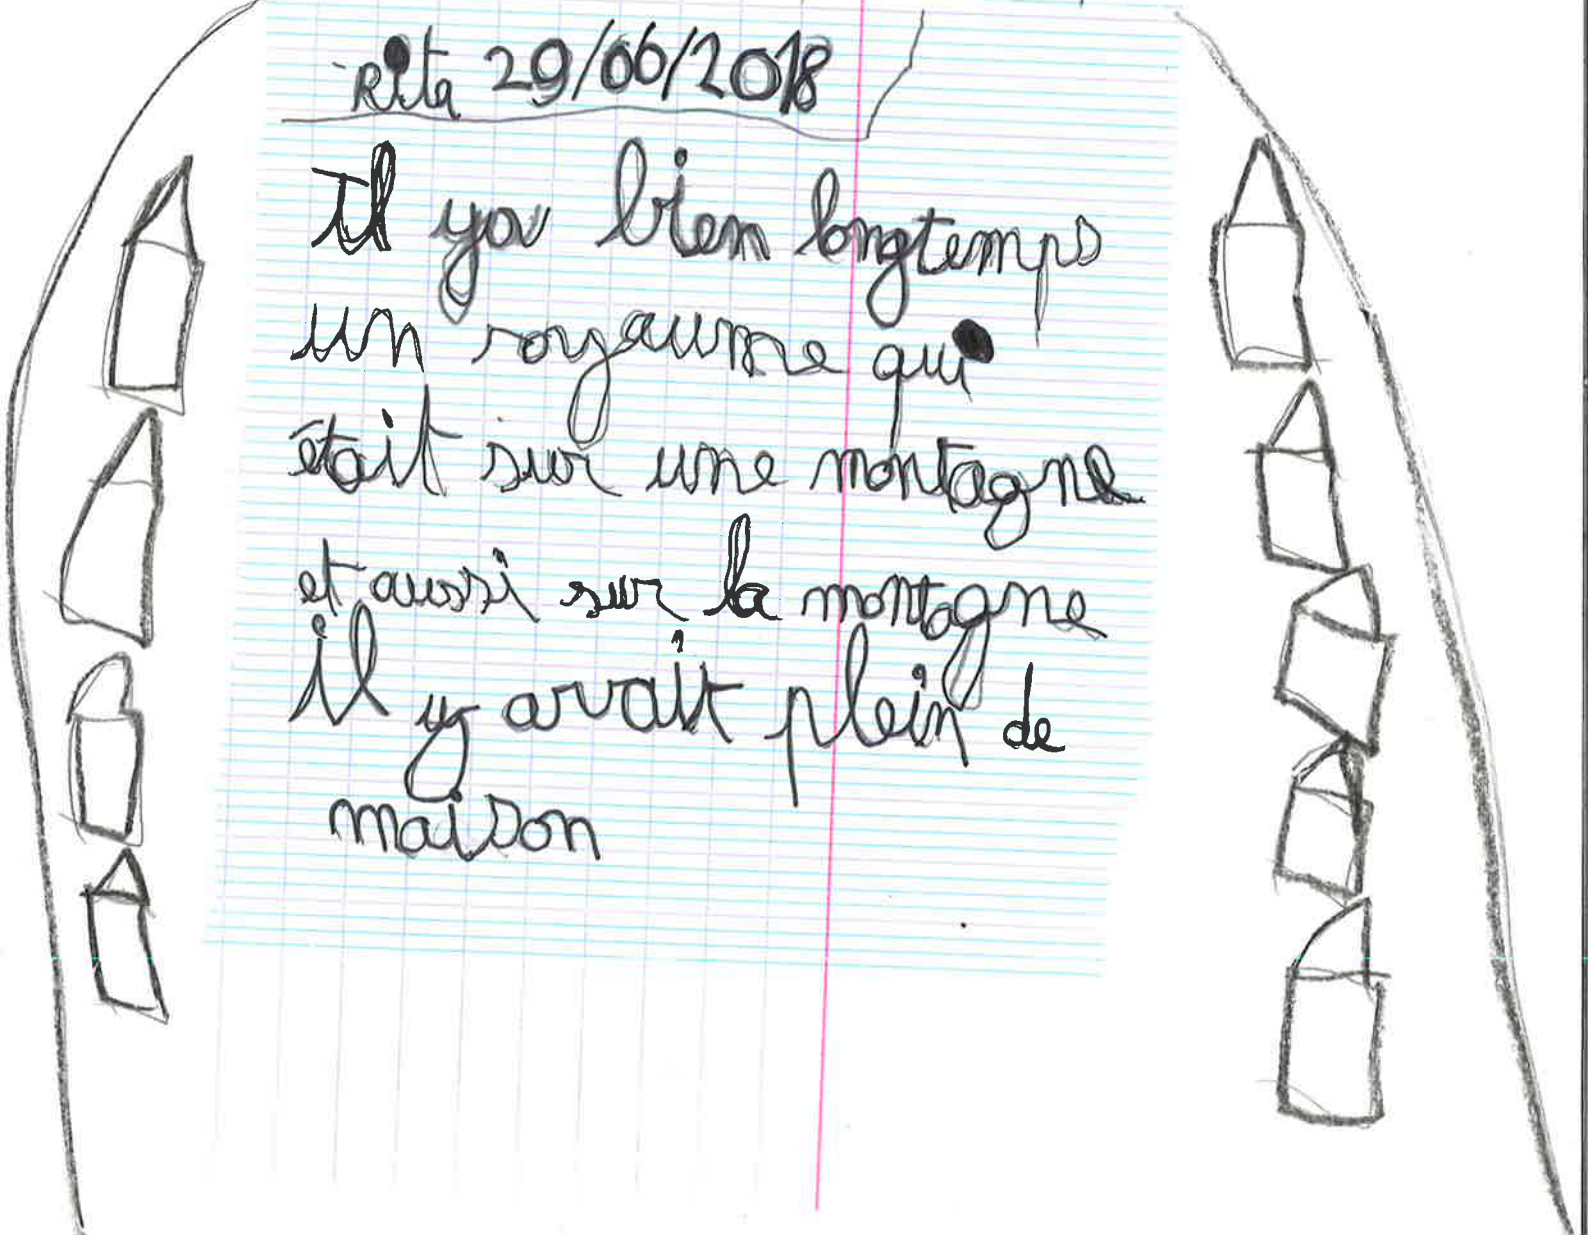 Rita 29/06/2018
Il ya bien longtemps
un royaume qui
était sur une montagne
et aussi sur la montagne
il y avait plein de
maison